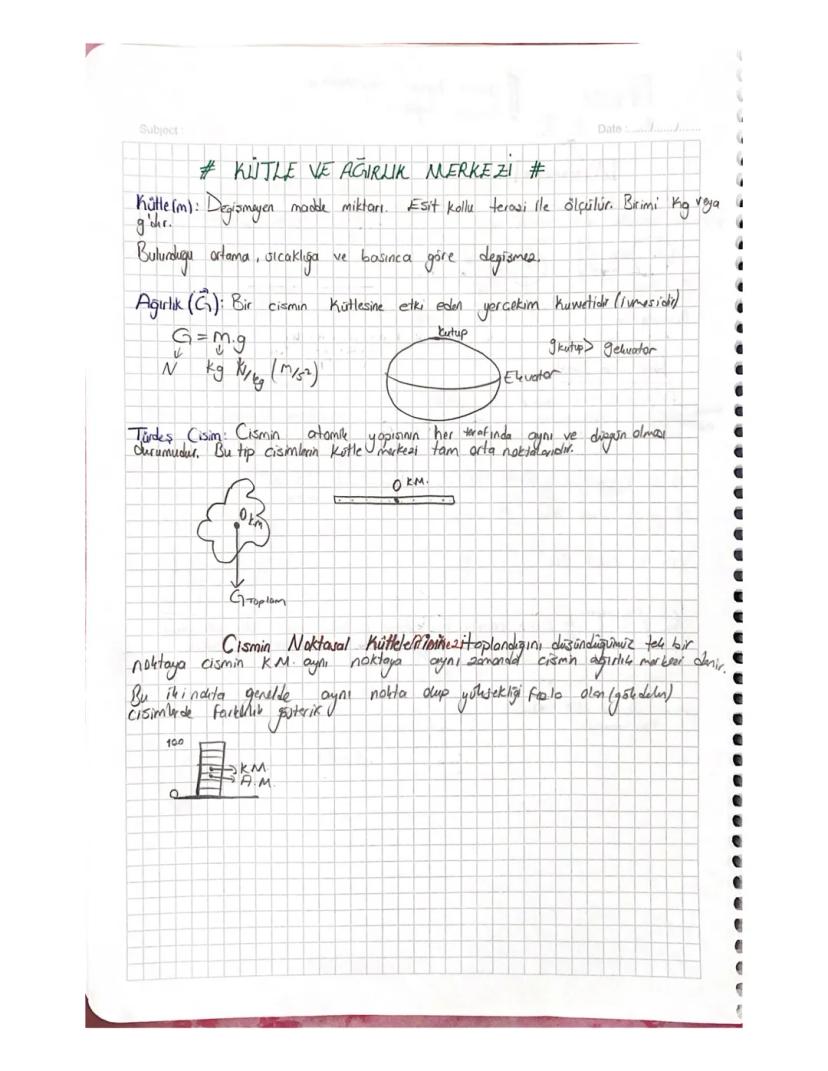 Subject :
Date : ....../....../......
# KÜTLE VE AĞIRLIK MERKEZİ #
Kütle(m): Degismeyen madde miktarı. Esit kollu terasi ile ölçülür. Birimi Kg veya
g'dır.
Bulundugu ortama, sıcaklığa ve basınca göre degismez.
Ağırlık (G): Bir cismin Kütlesine etki eden yercekim kuvvetidir (ivmesidir)
G = m.g
N kg N/kg (m/s²)
Kutup
Ekvator
gkutup> gekvator
Türdeş Cisim: Cismin atomik yapısının her tarafında aynı ve düzgün olması
durumudur. Bu tip cisimlerin kütle merkezi tam orta noktalarıdır.
O KM
GToplam
O KM.
Cismin Noktasal Kütlelerinin toplandıgını düşündüğümüz tek bir
noktaya cismin K.M. aynı noktaya aynı zamanda cismin ağırlık merkezi denir.
Bu iki nokta genelde aynı nokta olup yüksekliği fazla olan (gökdelen)
cisimlerde farklılık gösterir
100
K.M.
A.M.
0